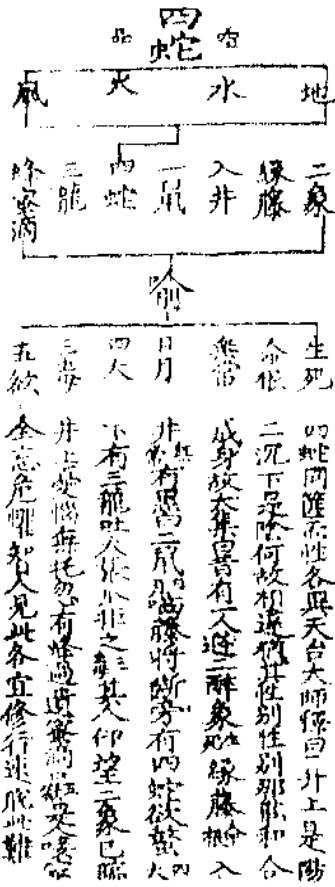 四蛇
喻
品
地
水
火
風
二象
緣藤
入井
二鼠
四蛇
三龍
蜂蜜滴
喻
生死
命根
無常
日月
四大
三毒
五欲
四蛇同匣而性各異天台大師釋曰二升上是陽
二沉下是陰何故相違猶其性別性別那能和合
成身故大集曰昔有一人避二醉象生死緣藤命根入
井無常有黑白二鼠日月嚙藤將斷旁有四蛇欲螫四大
下有三龍吐火張爪拒之三毒其人仰望二象已臨
井上憂惱無托忽有蜂過遺蜜滴口是人唼蜜
全忘危懼智人見此各宜修行速脫此難